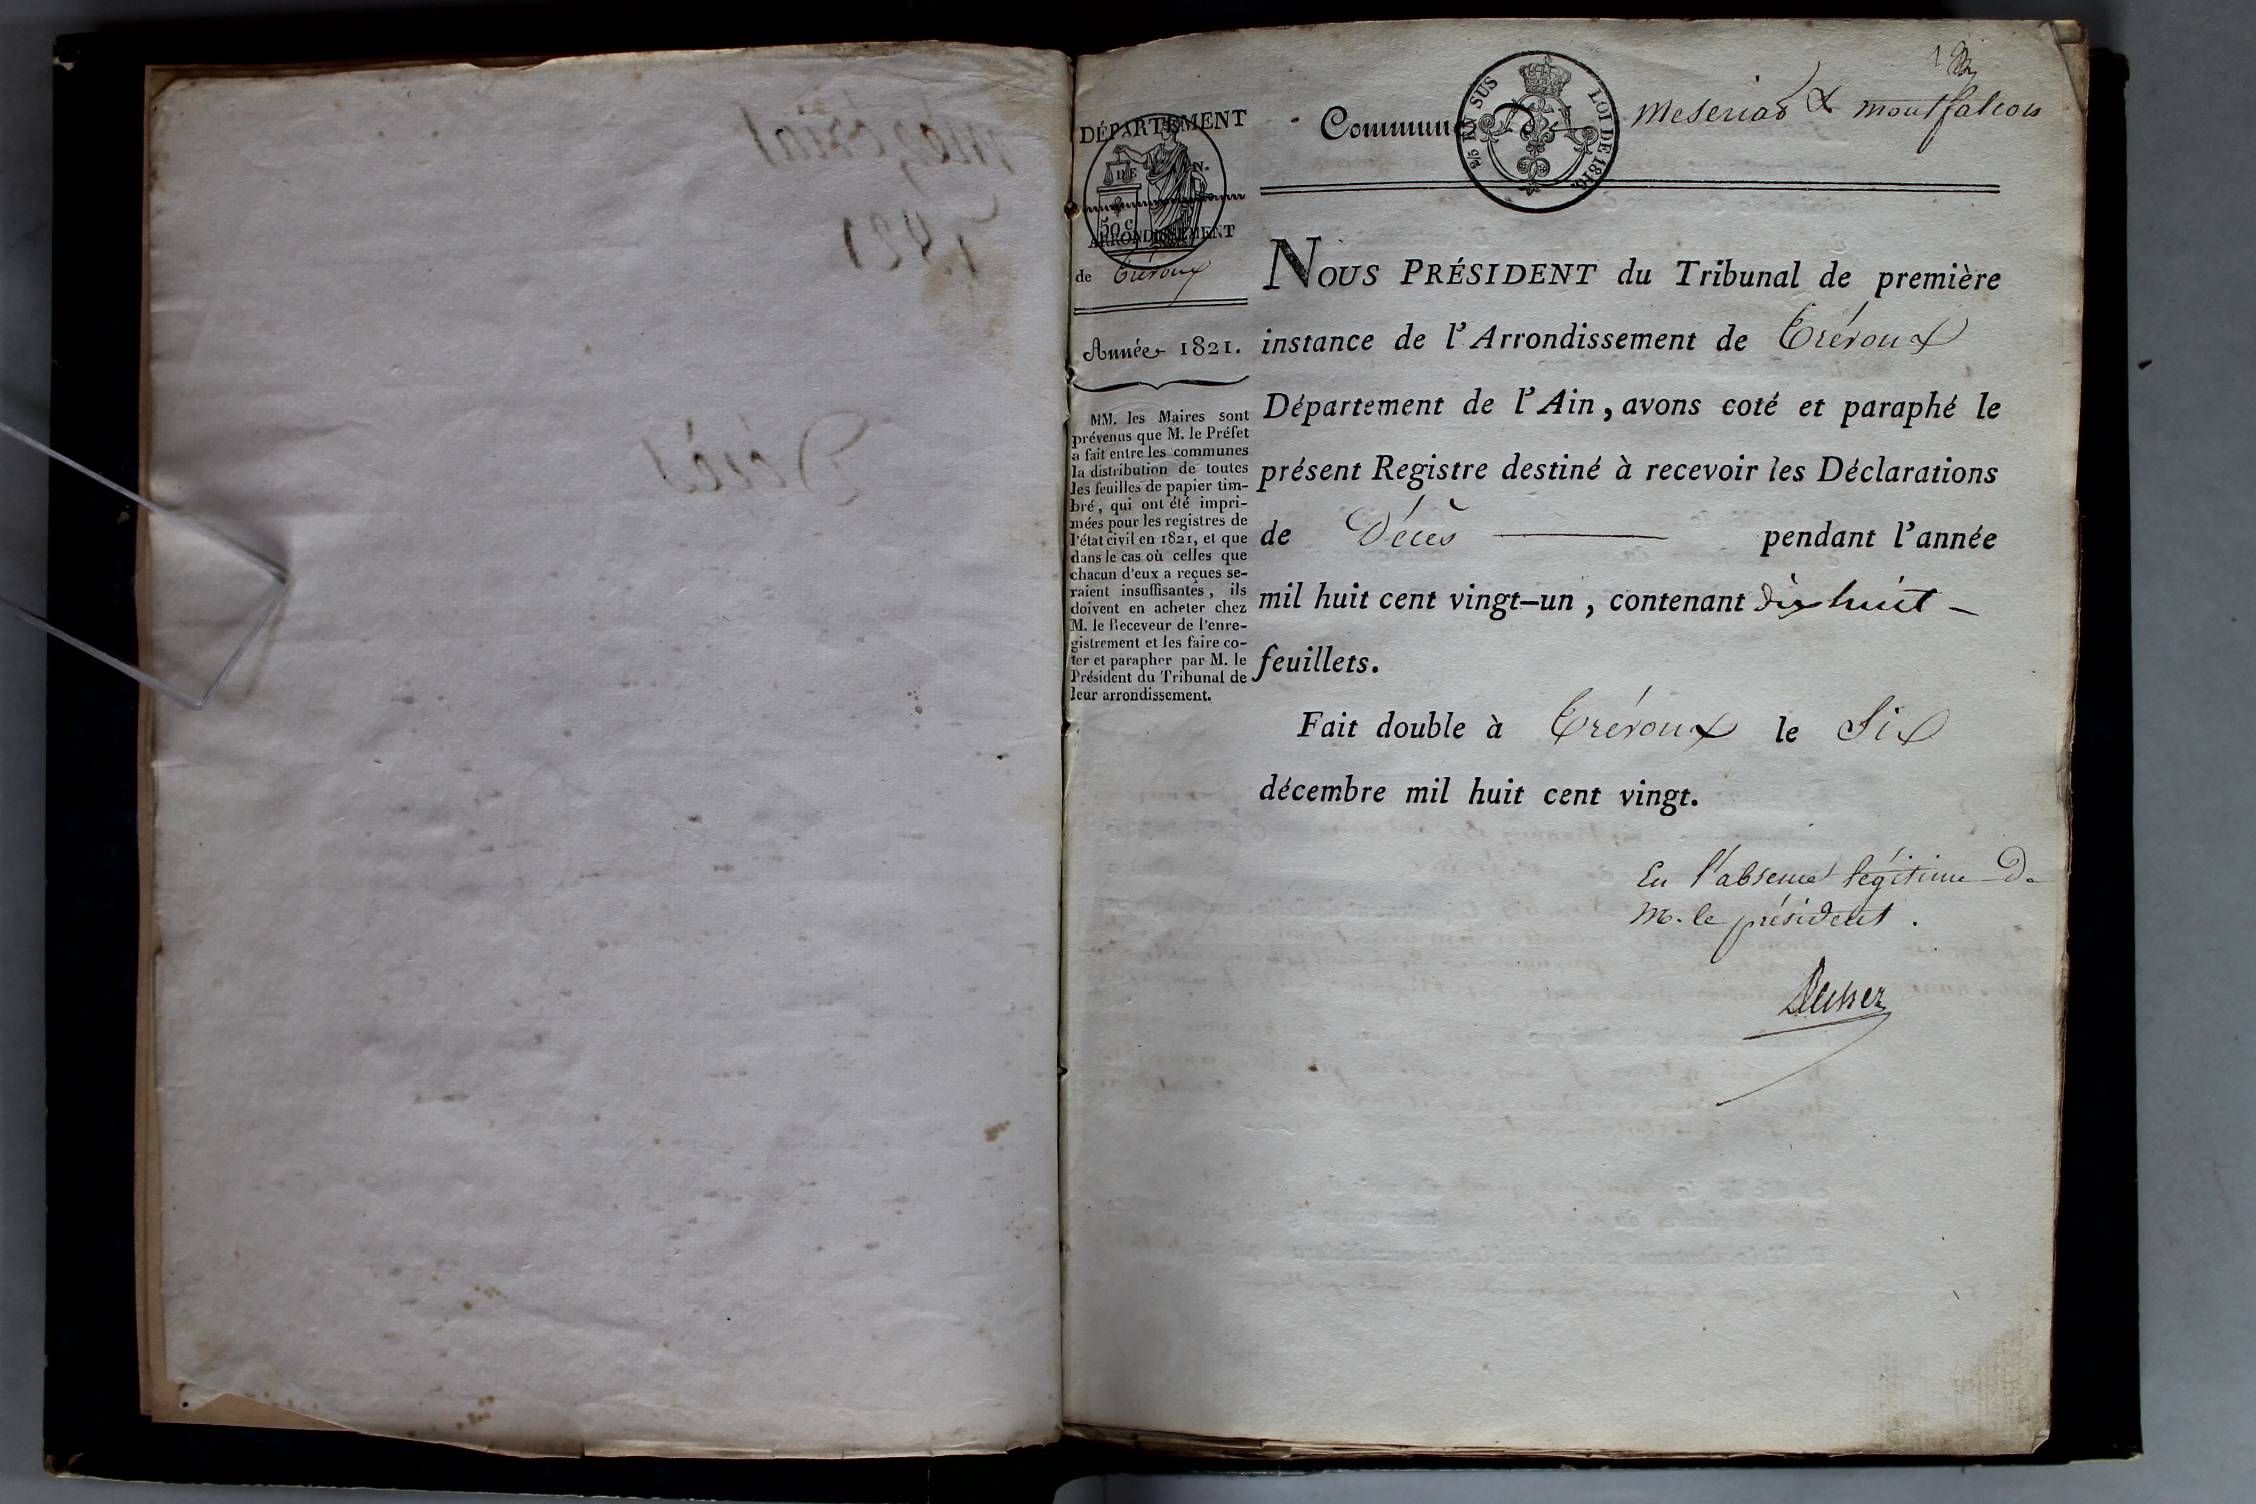 mézériat
1821
Décès
DÉPARTEMENT
DE L'AIN.
50 c
ARRONDISSEMENT
de Trévoux
Année 1821.
MM. les Maires sont
prévenus que M. le Préfet
a fait entre les communes
la distribution de toutes
les feuilles de papier tim-
bré, qui ont été impri-
mées pour les registres de
l'état civil en 1821, et que
dans le cas où celles que
chacun d'eux a reçues se-
raient insuffisantes, ils
doivent en acheter chez
M. le Receveur de l'enre-
gistrement et les faire co-
ter et parapher par M. le
Président du Tribunal de
leur arrondissement.
1
Commune de meseriat & montfalcon
EN SUS LOI DE 1816.
NOUS PRÉSIDENT du Tribunal de première
instance de l'Arrondissement de Trévoux
Département de l'Ain, avons coté et paraphé le
présent Registre destiné à recevoir les Déclarations
de Décès pendant l'année
mil huit cent vingt-un, contenant dix huit
feuillets.
Fait double à Trévoux le Six
décembre mil huit cent vingt.
En l'absence légitime De
M. le président.